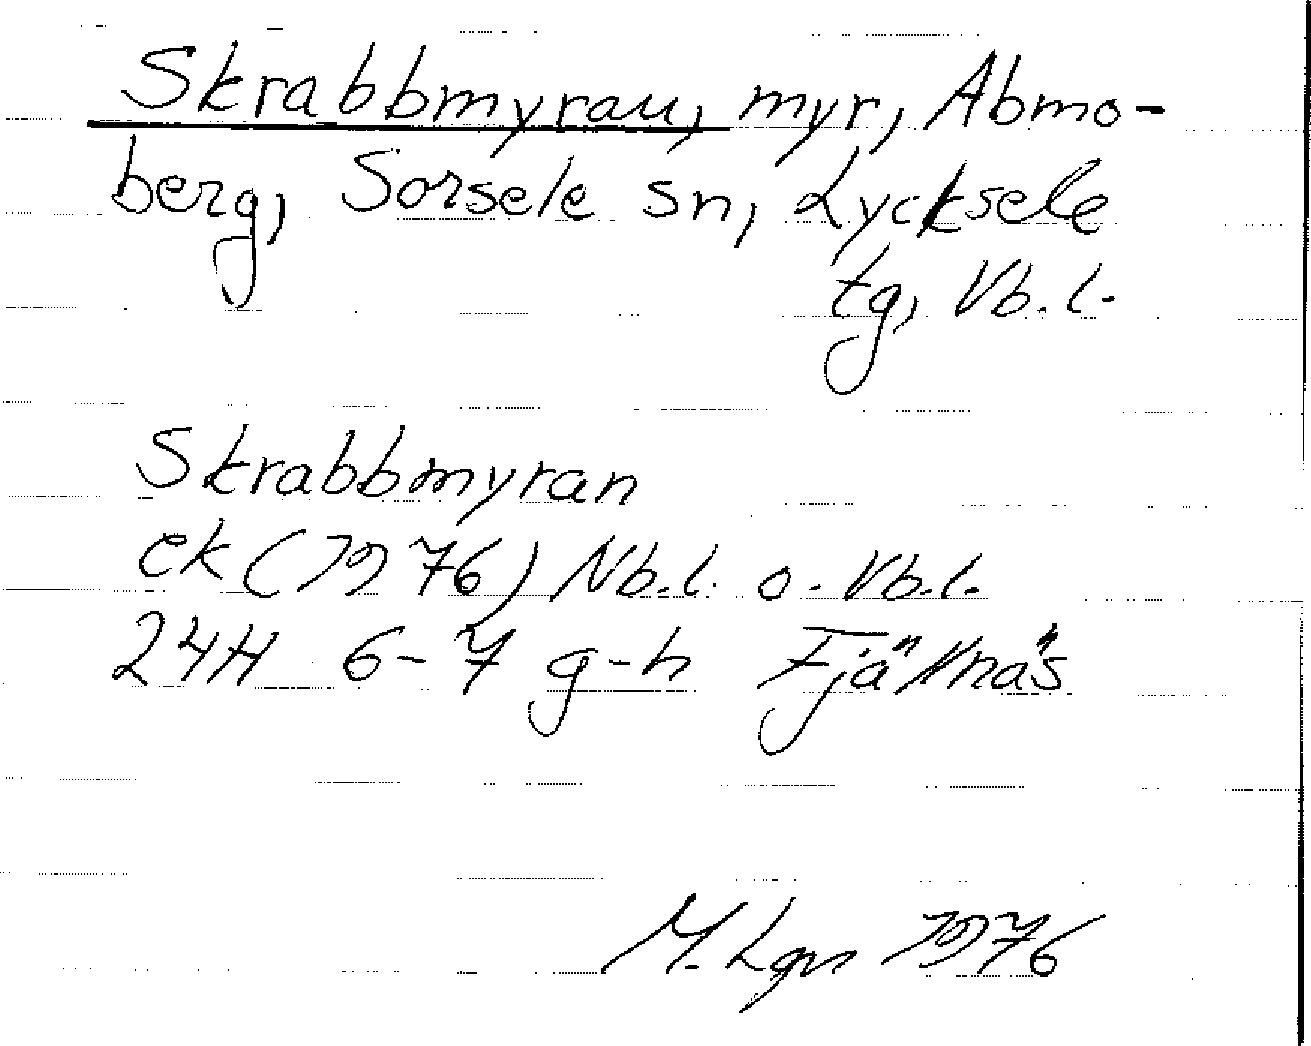 Skrabbmyran, myr, Abmo-
berg, Sorsele sn, Lycksele
tg, Vb. l.
Skrabbmyran
ek (1976) Nb.l. o. Vb.l.
24H 6-7 g-h Fjällnäs
M. Lgn 1976